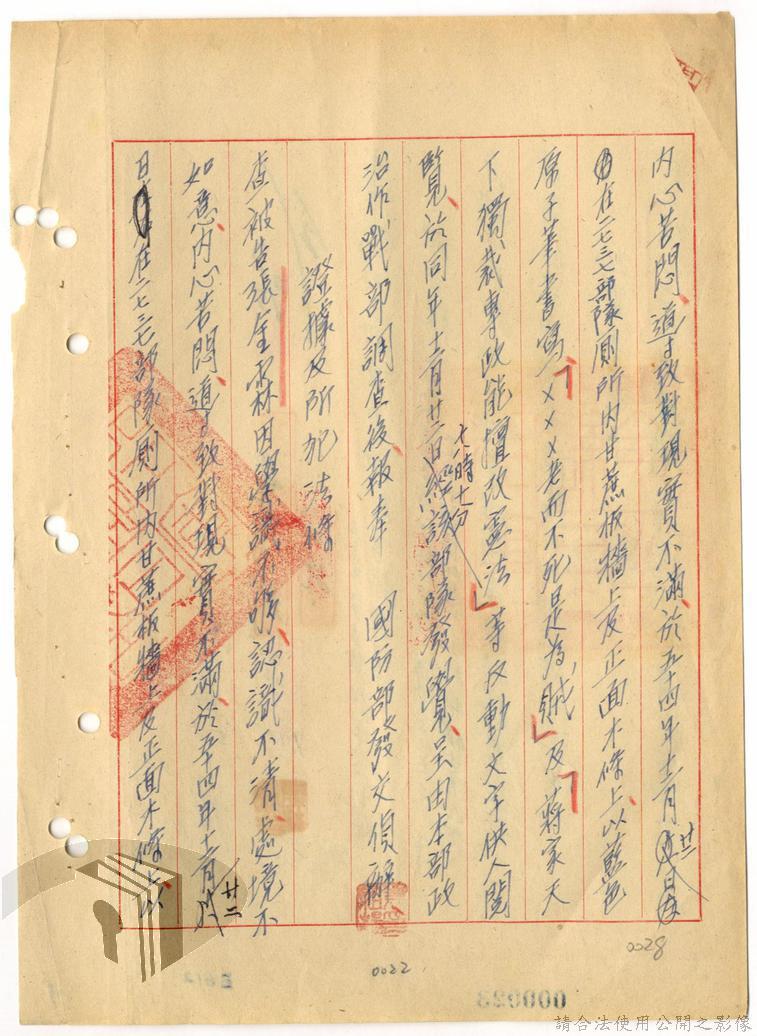 內心苦悶、遂致對現實不滿、於五十四年十二月廿二日
在二七三七部隊厠所內甘蔗板墻上及正面木條上、以藍色
原子筆書寫「×××老而不死是為賊」及「蔣家天
下獨裁專政能擅改憲法」等反動文字供人閱
覽、於同年十二月廿三日十八時十分經該部隊發覺、呈由本部政
治作戰部調查後報奉　國防部發交偵辦
證據及所犯法條
查被告張金霖因學識不够、認識不清、處境不
如意、內心苦悶、遂致對現實不滿、於五十四年十二月廿二
日在二七三七部隊厠所內甘蔗板墻上及正面木條上、以
0028
0022
000023
請合法使用公開之影像